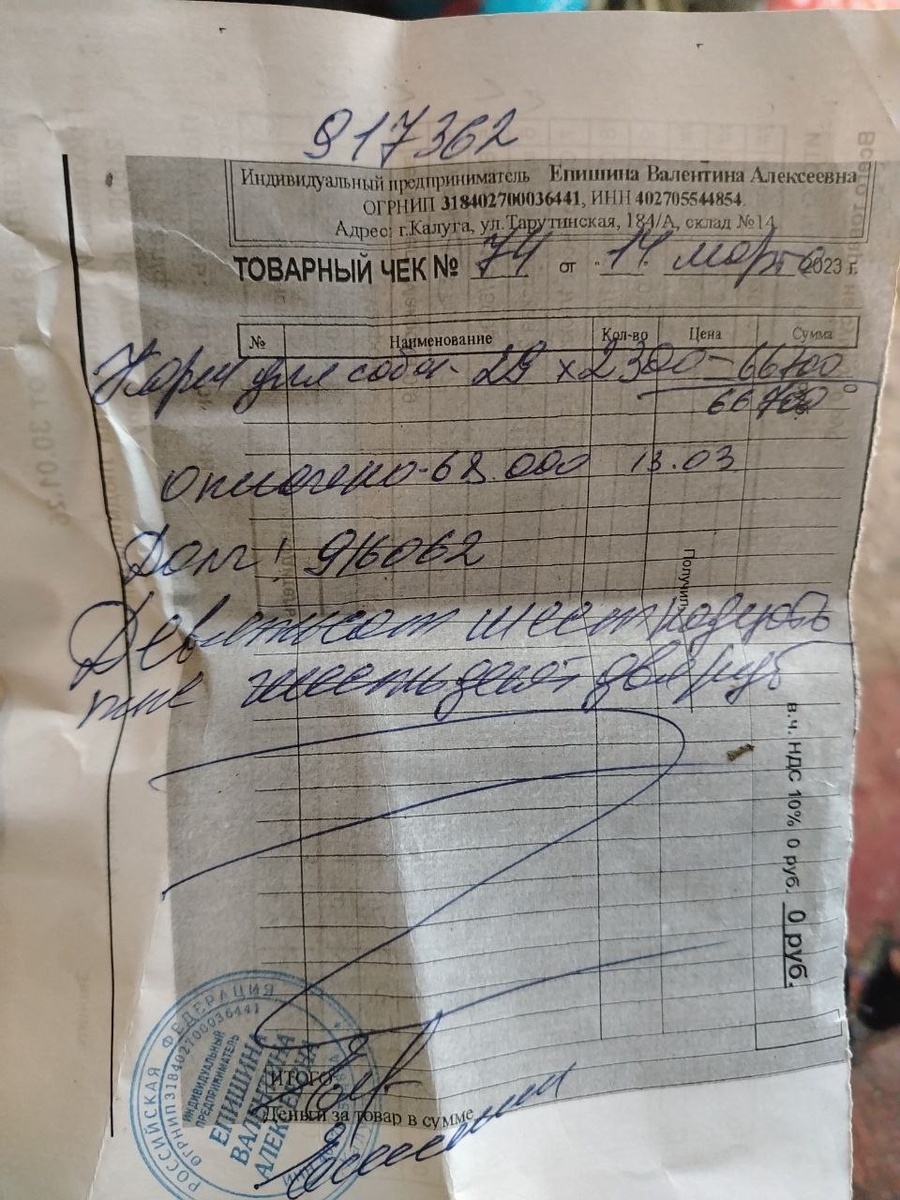 917362
Индивидуальный предприниматель Епишина Валентина Алексеевна
ОГРНИП 318402700036441, ИНН 402705544854.
Адрес: г.Калуга, ул.Тарутинская, 184/А, склад №14
ТОВАРНЫЙ ЧЕК № 74 от "14" марта 2023 г.
№ Наименование Кол-во Цена Сумма
Корм для собак- 29 x 2300 - 66700
66700
Оплачено-68.000 13.03
Долг! 916062
Девятьсот шестнадцать
тыс шестьдесят два руб
Получил
в.ч. НДС 10% 0 руб. 0 руб.
ИТОГО:
Деньги за товар в сумме
РОССИЙСКАЯ ФЕДЕРАЦИЯ
ОГРНИП318402700036441
ИНДИВИДУАЛЬНЫЙ
ПРЕДПРИНИМАТЕЛЬ
ЕПИШИНА
ВАЛЕНТИНА
АЛЕКСЕЕВНА